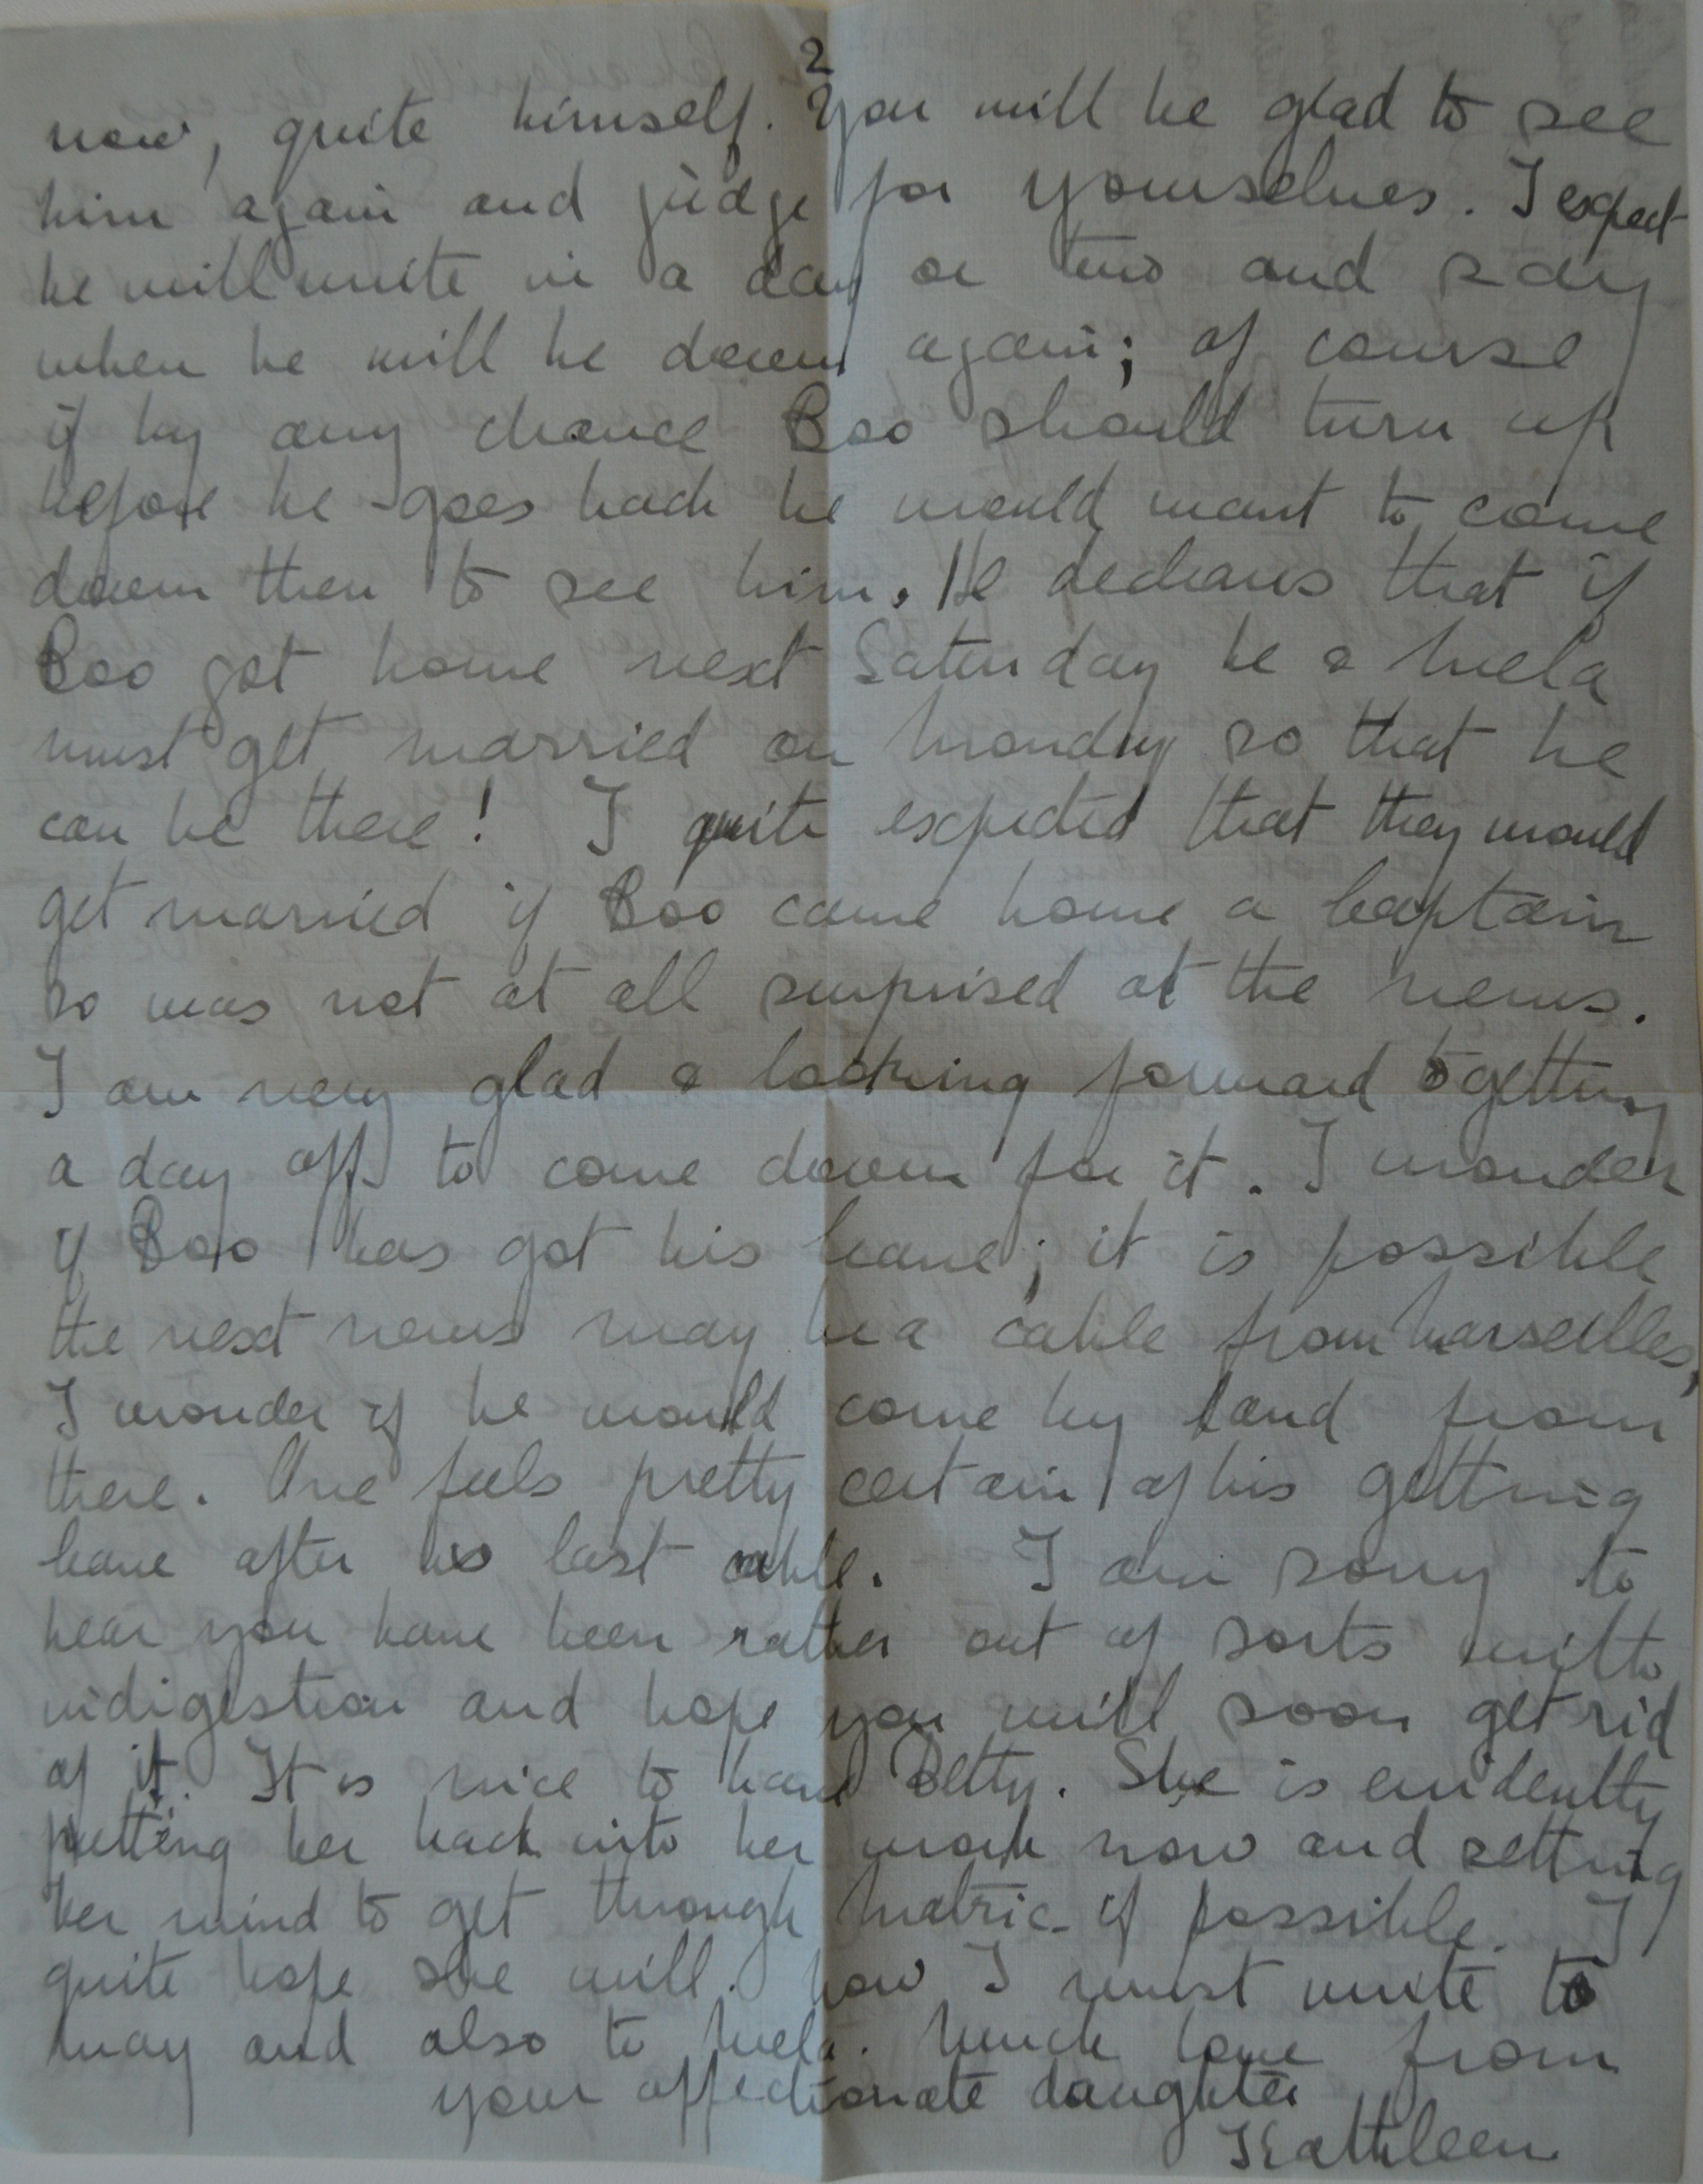 2
now, quite himself. You will be glad to see
him again and judge for yourselves. I expect
he will write in a day or two and say
when he will be down again; of course
if by any chance Boo should turn up
before he goes back he would want to come
down then to see him. He declares that if
Boo got home next Saturday he & Mela
must get married on Monday so that he
can be there! I quite expected that they would
get married if Boo came home a Captain
so was not at all surprised at the news.
I am very glad & looking forward to getting
a day off to come down for it. I wonder
if Boo has got his leave; it is possible
the next news may be a cable from Marseilles,
I wonder if he would come by land from
there. One feels pretty certain of his getting
leave after his last cable. I am sorry to
hear you have been rather out of sorts with
indigestion and hope you will soon get rid
of it. It is nice to have Betty. She is evidently
putting her back into her work now and setting
her mind to get through Matric if possible. I
quite hope she will. Now I must write to
May and also to Mela. Much love from
your affectionate daughter
Kathleen